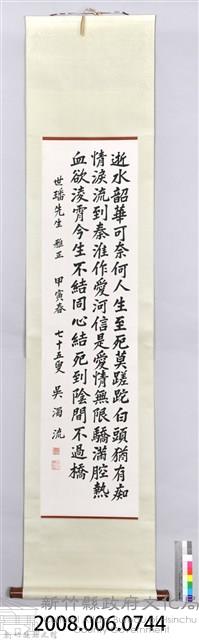 逝水韶華可奈何人生至死莫蹉跎白頭猶有痴
情淚流到秦淮作愛河信是愛情無限驕滿腔熱
血欲淩霄今生不結同心結死到陰間不過橋
世璠先生 雅正 甲寅春 七十五叟 吳濁流
新竹縣政府文化局
2008.006.0744